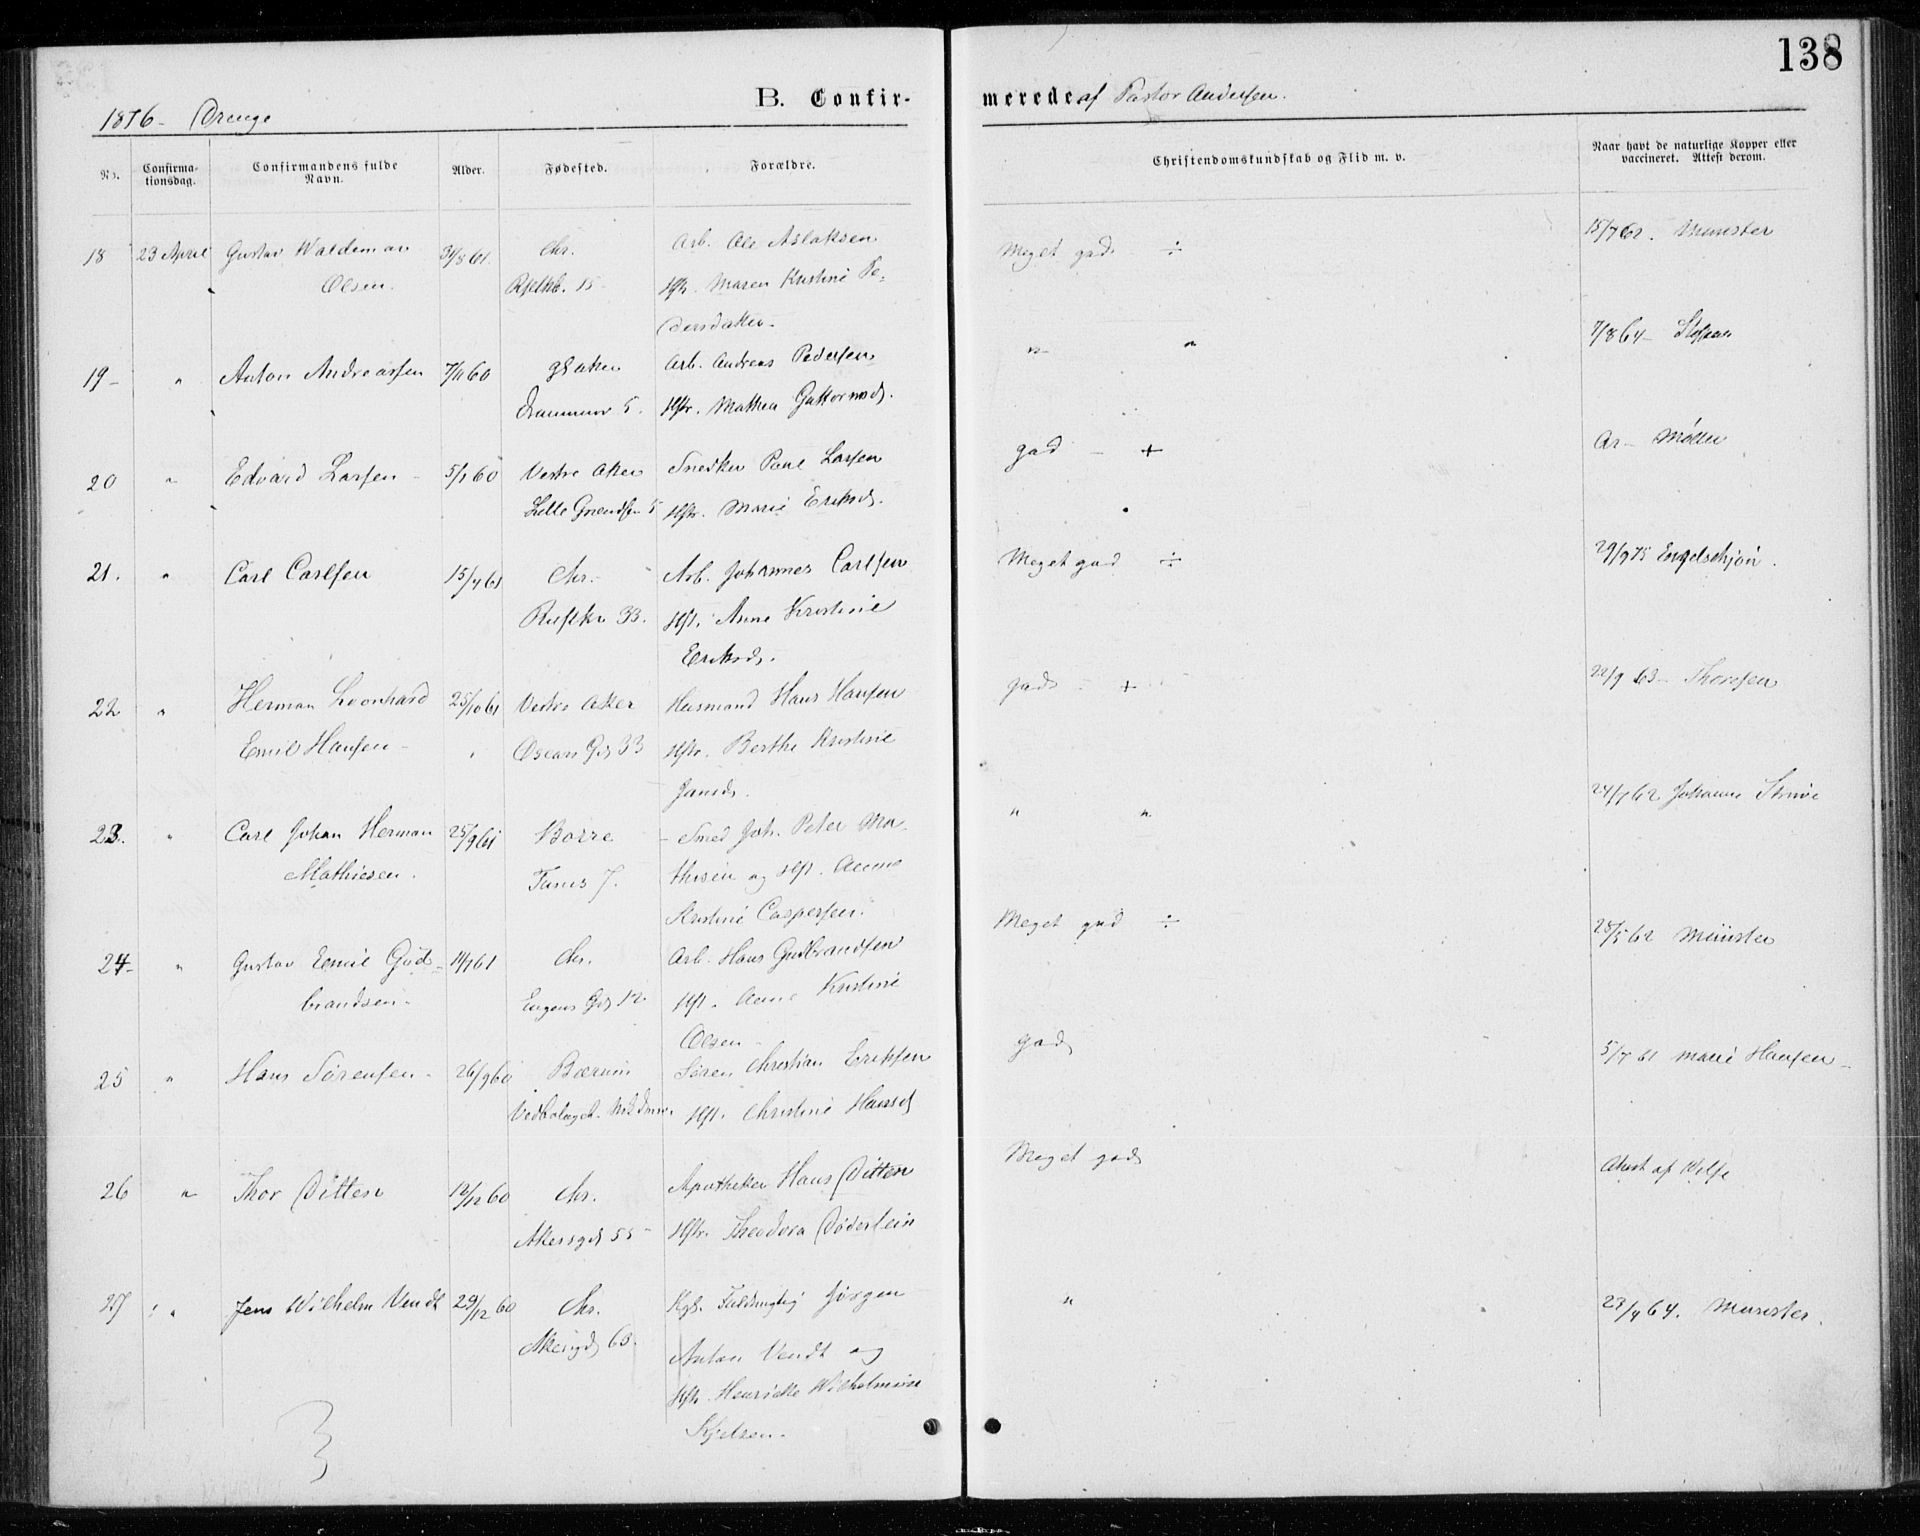 138
B. Confir-
merede af Pastor Andersen.
1876 - Drenge
No.
Confirma-
tionsdag.
Confirmandens fulde
Navn.
Alder.
Fødested.
Forældre.
Christendomskundskab og Flid m. v.
Naar havt de naturlige Kopper eller
vaccineret. Attest derom.
18 23 April Gustav Waldemar 31/8 61. Chr. Arb. Ole Aslaksen Meget god ÷ 15/7 62. Munster
Olsen. 15 Hst. Maren Kristine Pe-
dersdatter.
19 - " Anton Andreassen 7/11 60 Arb. Andreas Pedersen " " 7/8 64 -
5. Hstr. Mathea Guttormsd.
20 " Edvard Larsen - 5/1 60 Vestre Aker Snedker Paul Larsen god - + Møller
Lille 5 Hstr. Marie Eriksd.
21. " Carl Carlsen 15/7 61 Chr. - Arb. Johannes Carlsen Meget god ÷ 29/9 75 Engelschjøn.
33. Hst. Anne Kristine
Eriksd.
22 " Herman Leonhard 25/10 61 Vestre Aker Husmand Hans Hansen god - + 22/9 63 - Thoresen
Emil Hansen - Oscars Gd 33 Hstr. Berthe Kristine
Jansd.
23. " Carl Johan Herman 25/9 61 Borre - Smed Joh. Peter Ma- " " 24/7 62 Johanne
Mathiesen. 7. thisen og Hst. Anne
Kristine Caspersen.
24 - " Gustav Emil Gud- 14/7 61 Chr. Arb. Hans Gudbrandsen Meget god ÷ 25/5 62 Münster
brandsen - Eugens Gd 12 Hst. Anne Kristine
Olsen -
25 " Hans Sørensen - 26/9 60 Bærum Søren Christian Eriksen god 5/7 61 Marie Hansen -
Hst. Christine Hansd
26 " Thor Ditten 12/12 60 Chr. Apotheker Hans Ditten Meget god Attest af
Akersgd 55 - Hstr. Theodora Døderlein
27 " Jens Wilhelm Vendt 29/12 60 Chr. Kgl. Fuldmægtig Jørgen " 23/9 64. Munster.
Akersgd 63. Anton Vendt og
Hstr. Henriette Wilhelmine
Kjelsen.